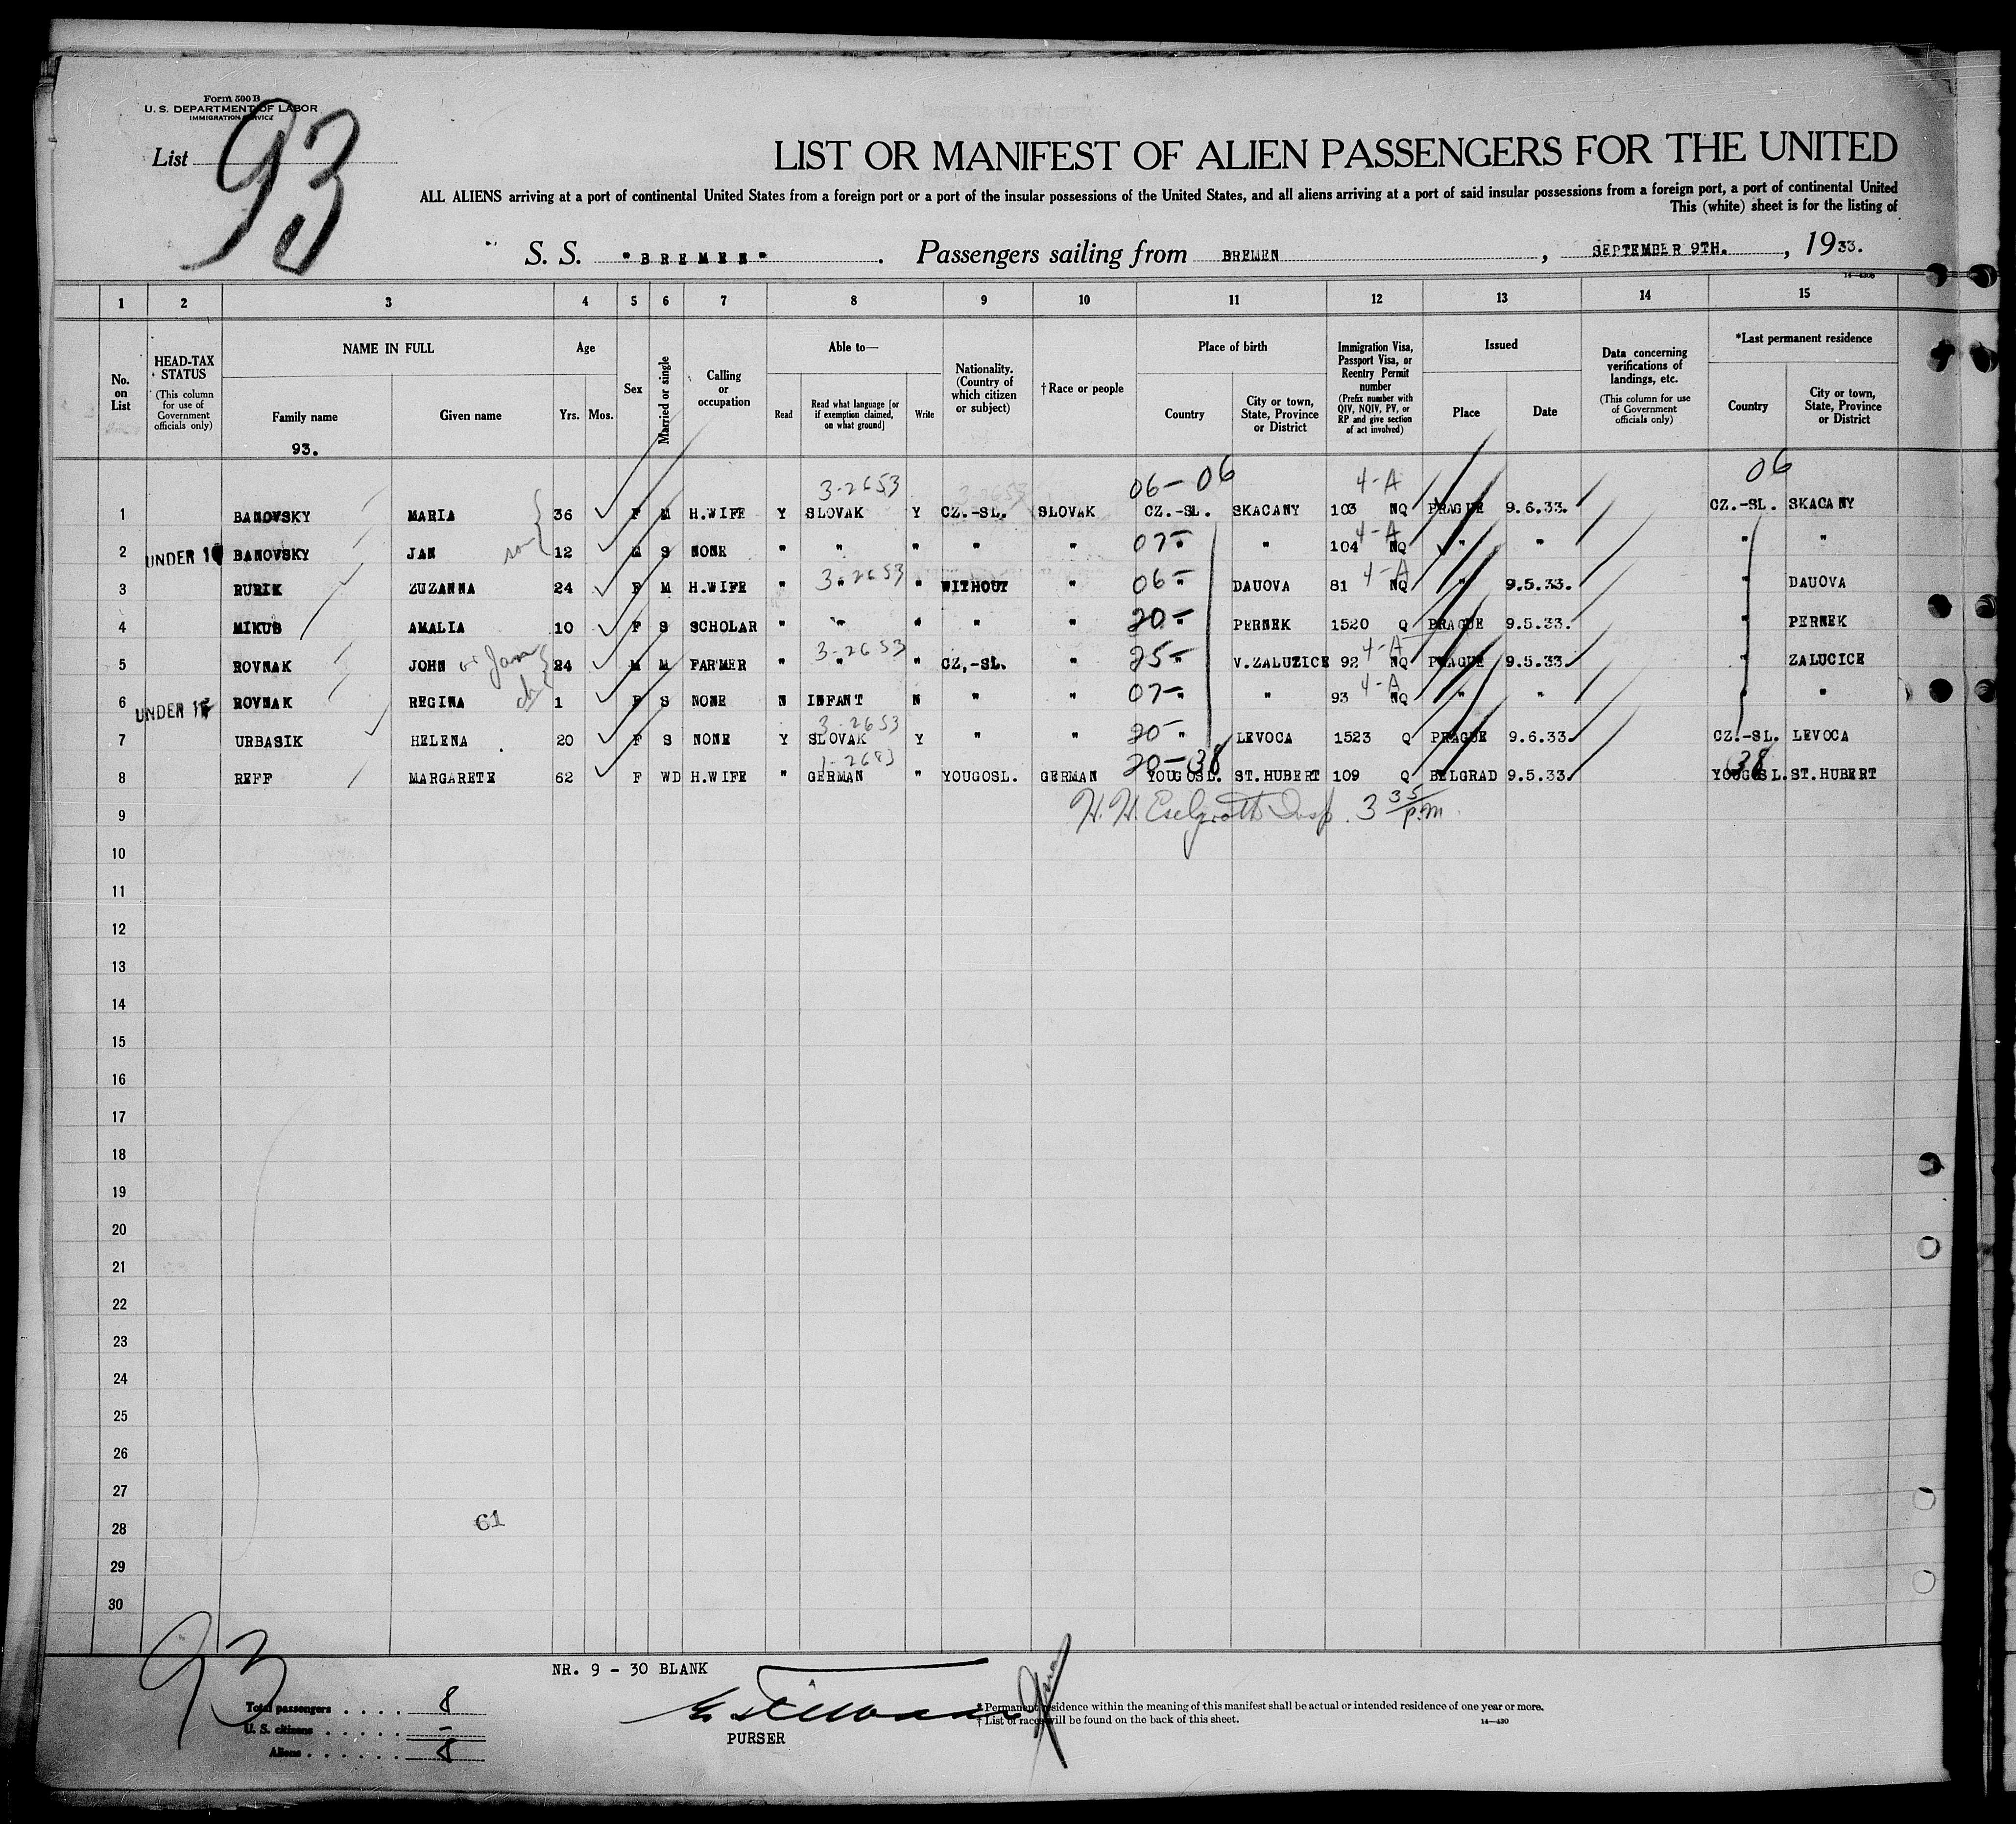 Form 500 B
U. S. DEPARTMENT OF LABOR
IMMIGRATION SERVICE
List 93
LIST OR MANIFEST OF ALIEN PASSENGERS FOR THE UNITED
ALL ALIENS arriving at a port of continental United States from a foreign port or a port of the insular possessions of the United States, and all aliens arriving at a port of said insular possessions from a foreign port, a port of continental United
This (white) sheet is for the listing of
S. S. "BREMEN". Passengers sailing from BREMEN, SEPTEMBER 9TH., 1933.
14—430B
1 2 3 4 5 6 7 8 9 10 11 12 13 14 15
No. on List
HEAD-TAX STATUS (This column for use of Government officials only)
NAME IN FULL Family name Given name
Age Yrs. Mos.
Sex
Married or single
Calling or occupation
Able to— Read Read what language [or if exemption claimed, on what ground] Write
Nationality. (Country of which citizen or subject)
†Race or people
Place of birth Country City or town, State, Province or District
Immigration Visa, Passport Visa, or Reentry Permit number (Prefix number with QIV, NQIV, PV, or RP and give section of act involved)
Issued Place Date
Data concerning verifications of landings, etc. (This column for use of Government officials only)
*Last permanent residence Country City or town, State, Province or District
93.
3-2653 3-2653 06-06 4-A 06
1 BANOVSKY MARIA 36 F M H.WIFE Y SLOVAK Y CZ.-SL. SLOVAK CZ.-SL. SKACANY 103 NQ PRAGUE 9.6.33. CZ.-SL. SKACANY
2 UNDER 16 BANOVSKY JAN son 12 M S NONE " " " " " 07- " " 104 4-A NQ " " " "
3 RURIK ZUZANNA 24 F M H.WIFE " 3-2653 " " WITHOUT " 06- " DAUOVA 81 4-A NQ " 9.5.33. " DAUOVA
4 MIKUS AMALIA 10 F S SCHOLAR " " " " " 20- " PERNEK 1520 Q PRAGUE 9.5.33. " PERNEK
5 ROVNAK JOHN or Jan 24 M M FARMER " 3-2653 " " CZ,-SL. " 25- " V.ZALUZICE 92 4-A NQ PRAGUE 9.5.33. " ZALUCICE
6 UNDER 16 ROVNAK REGINA ch 1 F S NONE N INFANT N " " 07- " " 93 4-A NQ " " " "
7 URBASIK HELENA 20 F S NONE Y 3-2653 SLOVAK Y " " 20- " LEVOCA 1523 Q PRAGUE 9.6.33. CZ.-SL. LEVOCA
8 REFF MARGARETE 62 F WD H.WIFE " 1-2683 GERMAN " YOUGOSL. GERMAN 20-38 YOUGOSL. ST.HUBERT 109 Q BELGRAD 9.5.33. 38 YOUGOSL. ST.HUBERT
9 H. H. Insp. 3 35 p.m.
10
11
12
13
14
15
16
17
18
19
20
21
22
23
24
25
26
27
28
61
29
30
93
NR. 9 - 30 BLANK
Total passengers . . . . 8
U. S. citizens . . . . . –
Aliens . . . . . . 8
PURSER
* Permanent residence within the meaning of this manifest shall be actual or intended residence of one year or more.
† List of races will be found on the back of this sheet.
14—430